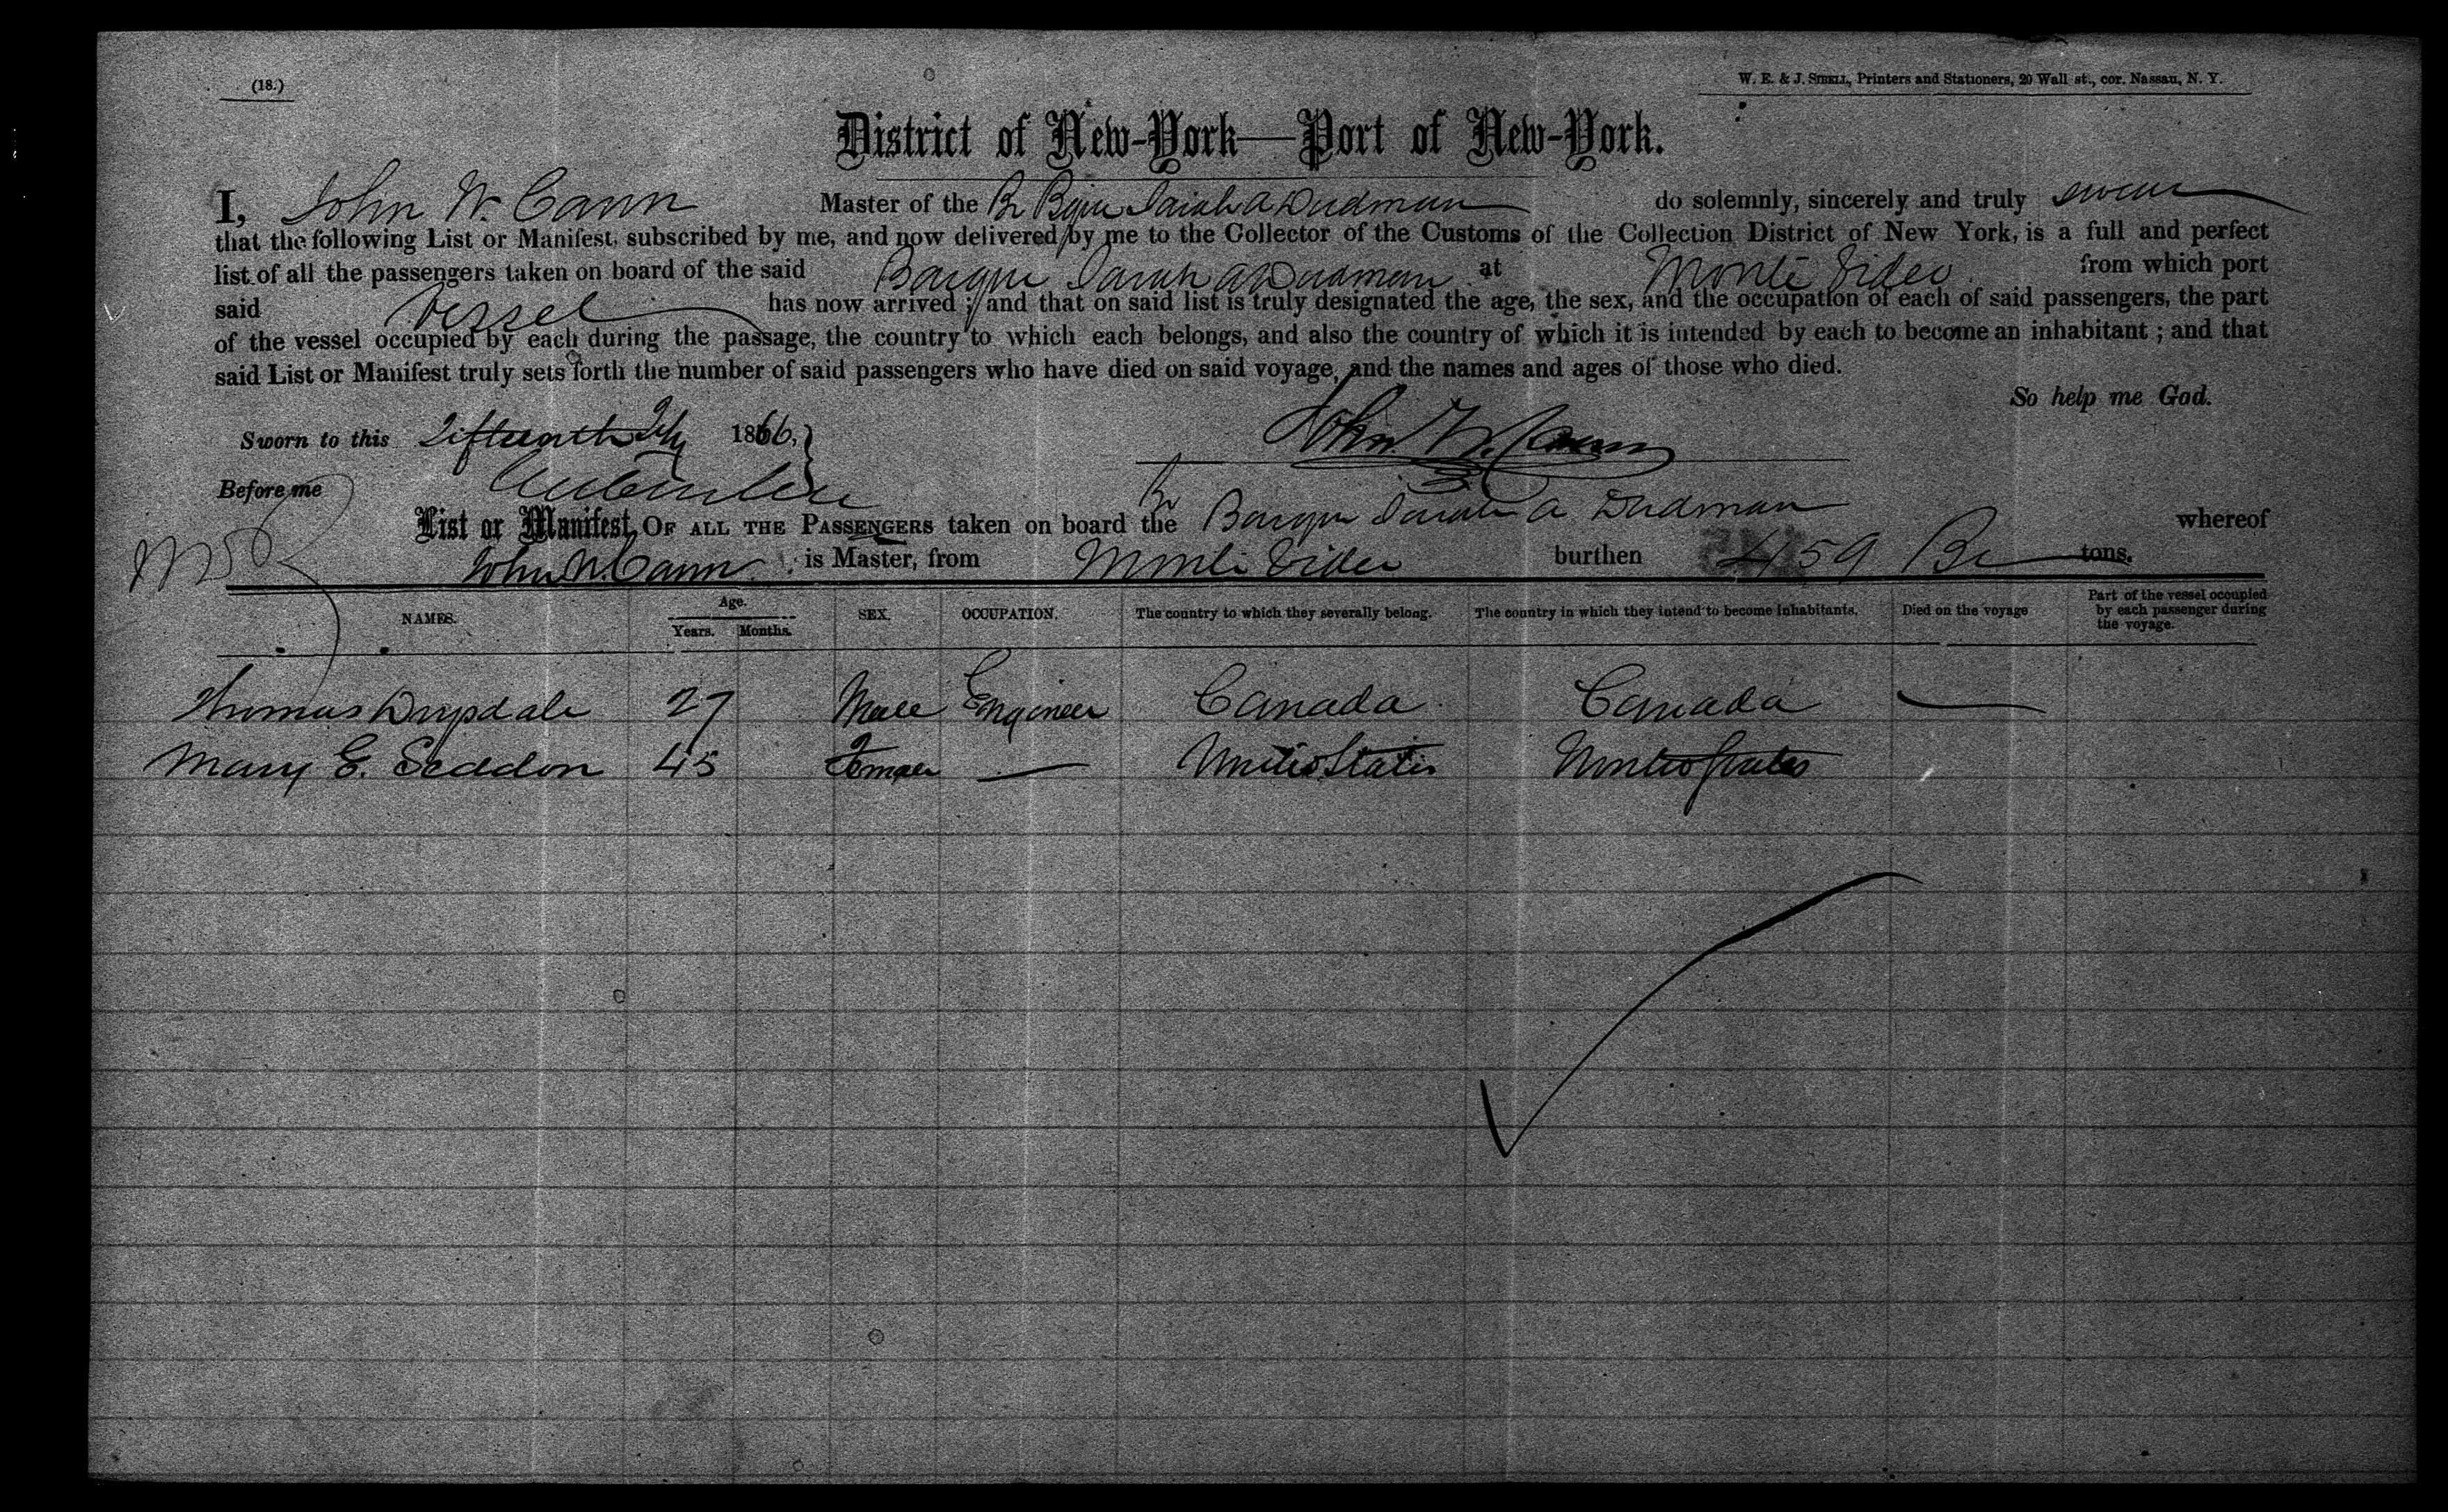 (18.)
W. E. & J. SIBELL, Printers and Stationers, 20 Wall st., cor. Nassau, N. Y.
District of New-York—Port of New-York.
I, John W. Cann Master of the Br Bque Sarah A Dudman do solemnly, sincerely and truly swear
that the following List or Manifest, subscribed by me, and now delivered by me to the Collector of the Customs of the Collection District of New York, is a full and perfect
list of all the passengers taken on board of the said Barque Sarah A Dudman at Monte Video from which port
said Vessel has now arrived; and that on said list is truly designated the age, the sex, and the occupation of each of said passengers, the part
of the vessel occupied by each during the passage, the country to which each belongs, and also the country of which it is intended by each to become an inhabitant; and that
said List or Manifest truly sets forth the number of said passengers who have died on said voyage, and the names and ages of those who died.
So help me God.
Sworn to this fifteenth 1866, John W. Cann
Before me
List or Manifest OF ALL THE PASSENGERS taken on board the Br Barque Sarah A Dudman whereof
John W. Cann is Master, from Monte Video burthen 459 tons.
NAMES. Age. Years. Months. SEX. OCCUPATION. The country to which they severally belong. The country in which they intend to become inhabitants. Died on the voyage Part of the vessel occupied by each passenger during the voyage.
Thomas 27 Male Engineer Canada Canada —
Mary E. Seddon 45 Female — United States United States